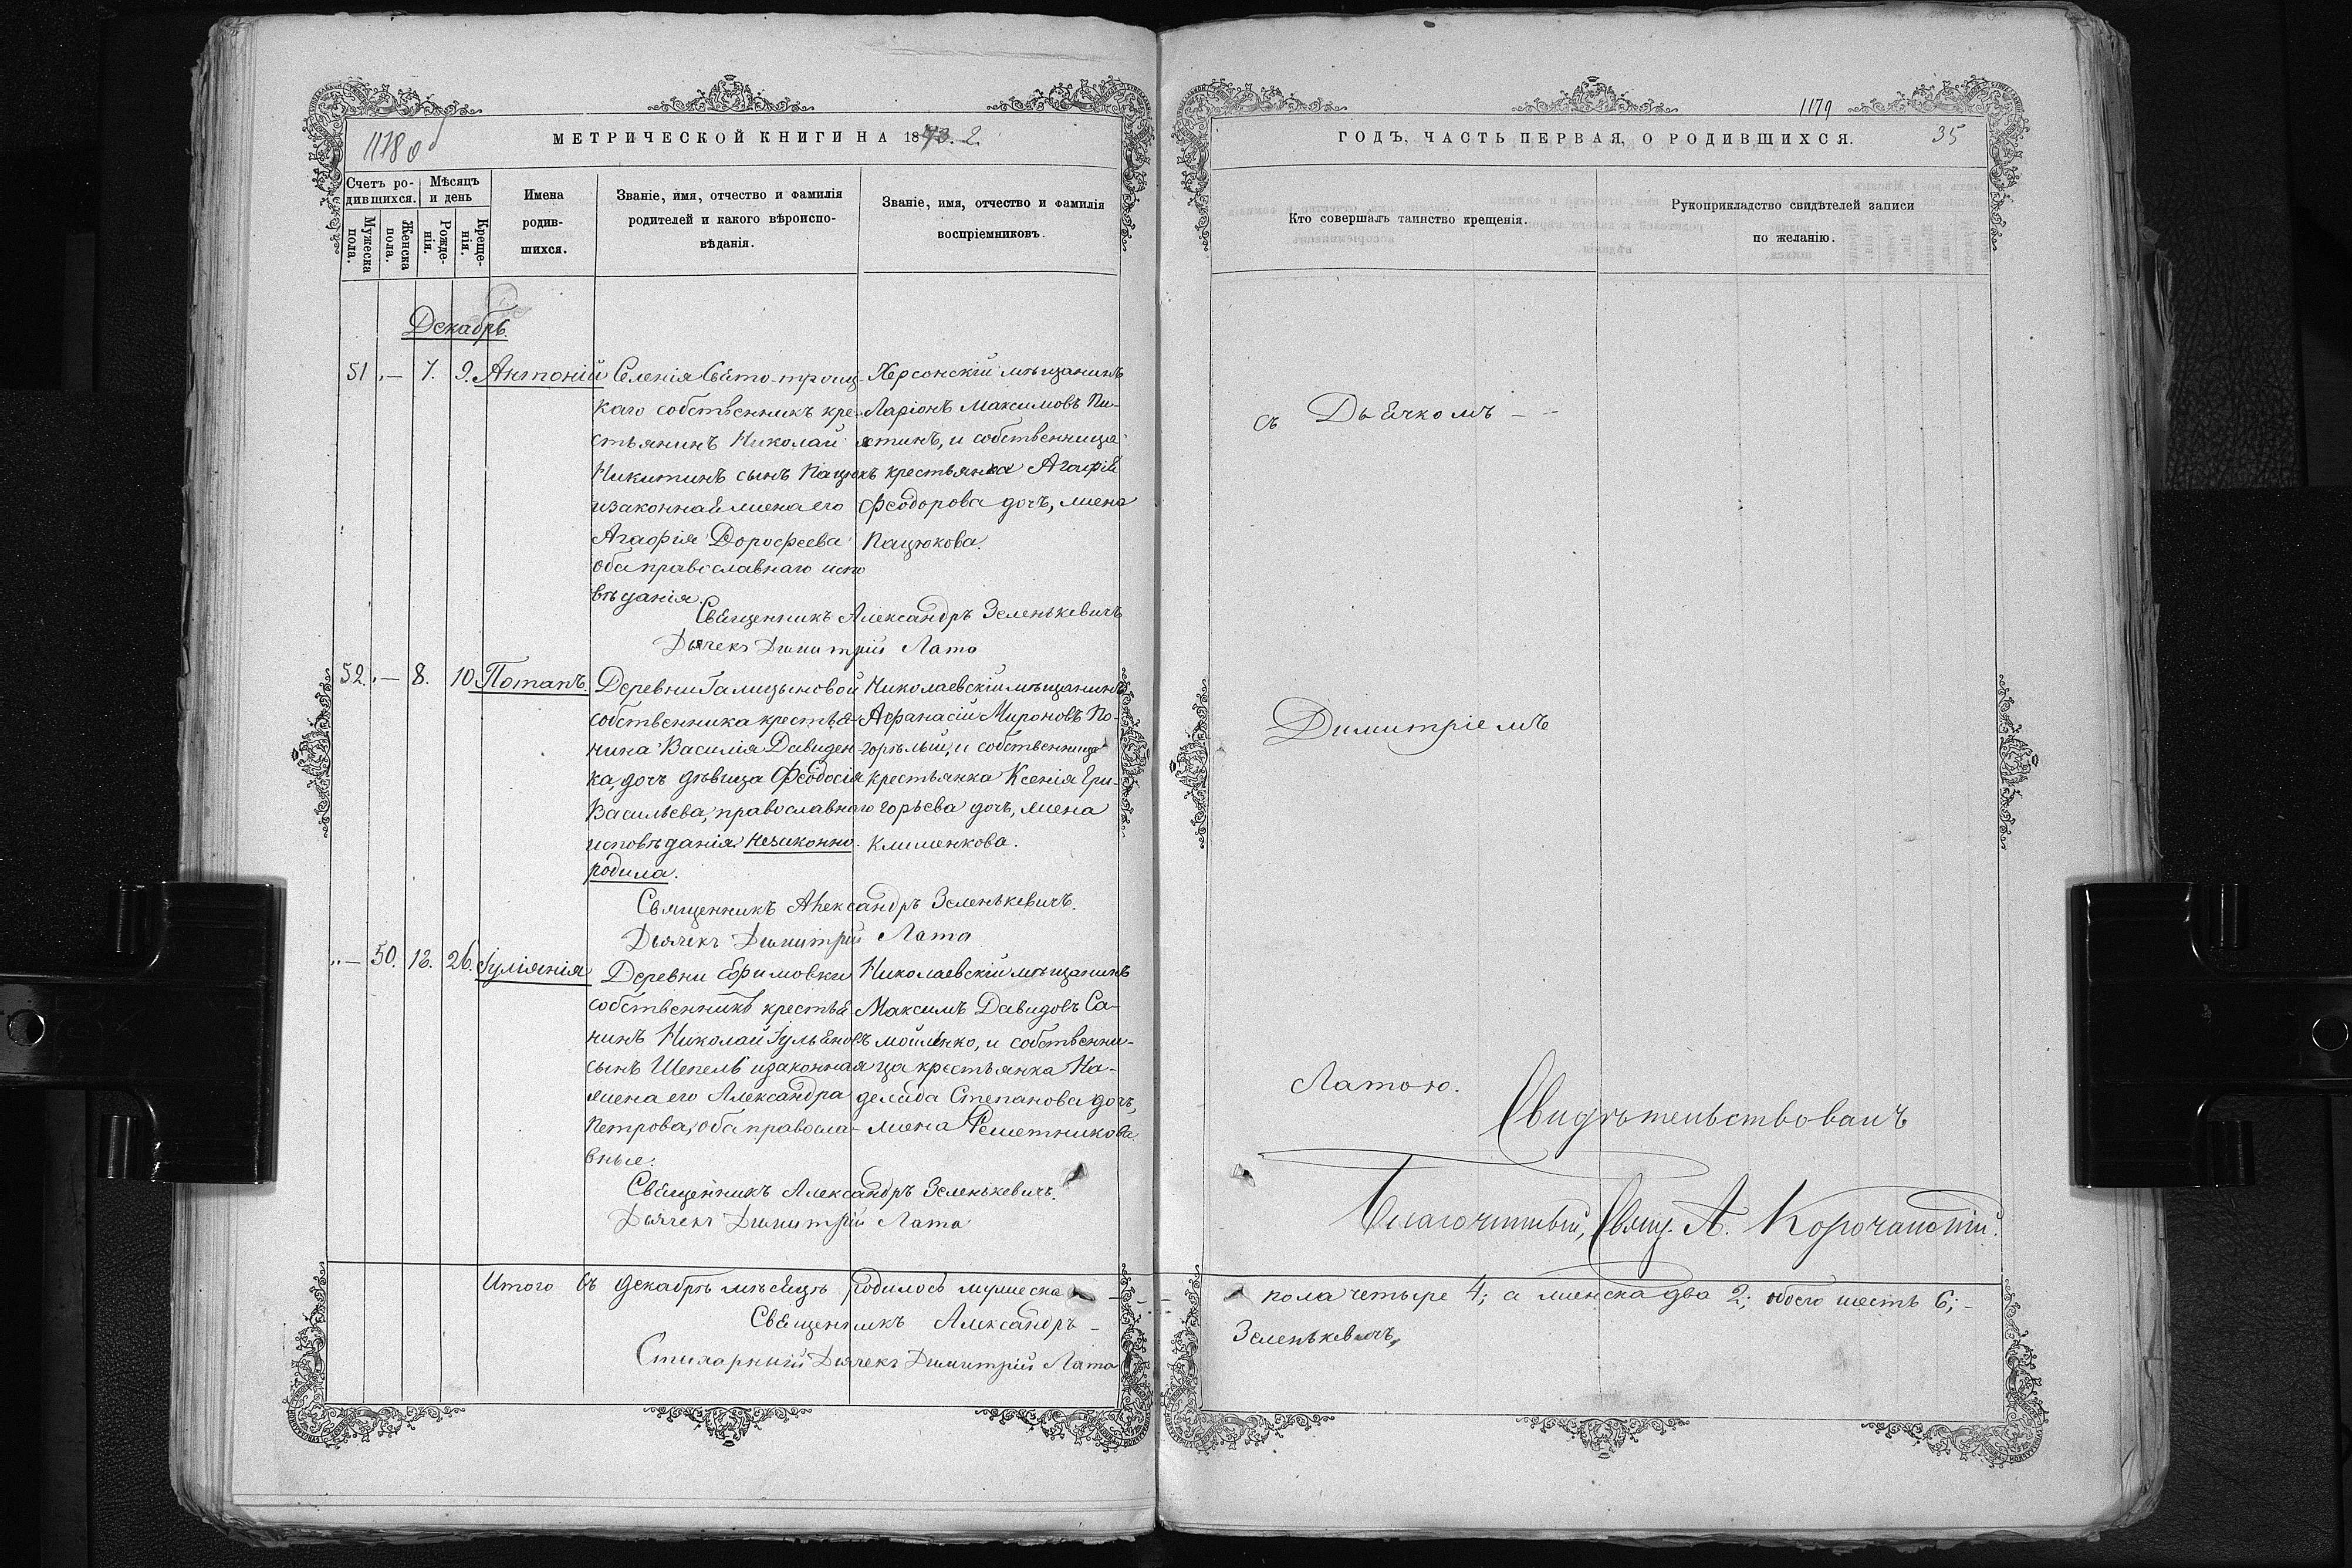 1178 об
МЕТРИЧЕСКОЙ КНИГИ НА 1873. 2.
Счетъ ро-
дившихся.
Мѣсяцъ
и день
Мужеска
пола.
Женска
пола.
Рожде-
нія.
Креще-
нія.
Имена
родив-
шихся.
Званіе, имя, отчество и фамилія
родителей и какого вѣроиспо-
вѣданія.
Званіе, имя, отчество и фамилія
воспріемниковъ.
Декабрь.
51 „— 7. 9. Антоній
Селенія Свято-троиц-
каго собственникъ кре-
стьянинъ Николай
Никитинъ сынъ Пацюкъ
и законная жена его
Агафія Дорофеева
оба православнаго испо
вѣданія.
Херсонскій мѣщанинъ
Ларіонъ Максимовъ Пи-
стинъ, и собственница
крестьянка Агафія
Феодорова дочь, жена
Пацюкова.
Священникъ Александръ Зеленькевичъ
Дьячекъ Димитрій Лата
52. „— 8. 10. Потапъ.
Деревни Галицыновой
собственника крестья-
нина Василія Давиден-
ка, дочь дѣвица Феодосія
Васильева, православнаго
исповѣданія. незаконно
родила.
Николаевскій мѣщанинъ
Афанасій Мироновъ По-
горѣлый, и собственница
крестьянка Ксенія Гри-
горьева дочь, жена
Клименкова.
Священникъ Александръ Зеленькевичъ.
Дьячекъ Димитрій Лата
„— 50. 12. 26. Іуліянія
Деревни Ефимовки
собственникъ крестья
нинъ Николай Іульяновъ
сынъ Шепель и законная
жена его Александра
Петрова, оба правосла-
вные.
Николаевскій мѣщанинъ
Максимъ Давидовъ Са-
мойленко, и собственни-
ца крестьянка На-
делида Степанова дочь,
жена Решетникова
Священникъ Александръ Зеленькевичъ.
Дьячекъ Димитрій Лата
Итого въ Декабрѣ мѣсяцѣ родилось мужеска
Священникъ Александръ
Стихарный Дьячекъ Димитрій Лата
1179
ГОДЪ, ЧАСТЬ ПЕРВАЯ, О РОДИВШИХСЯ.
35
Кто совершалъ таинство крещенія.
Рукоприкладство свидѣтелей записи
по желанію.
съ Дьячкомъ
Димитріемъ
Латою.
Свидѣтельствовалъ
Благочинный, Свящ. А. Корочанскій.
пола четыре 4; а женска два 2; обоего шесть 6;
Зеленькевичъ,